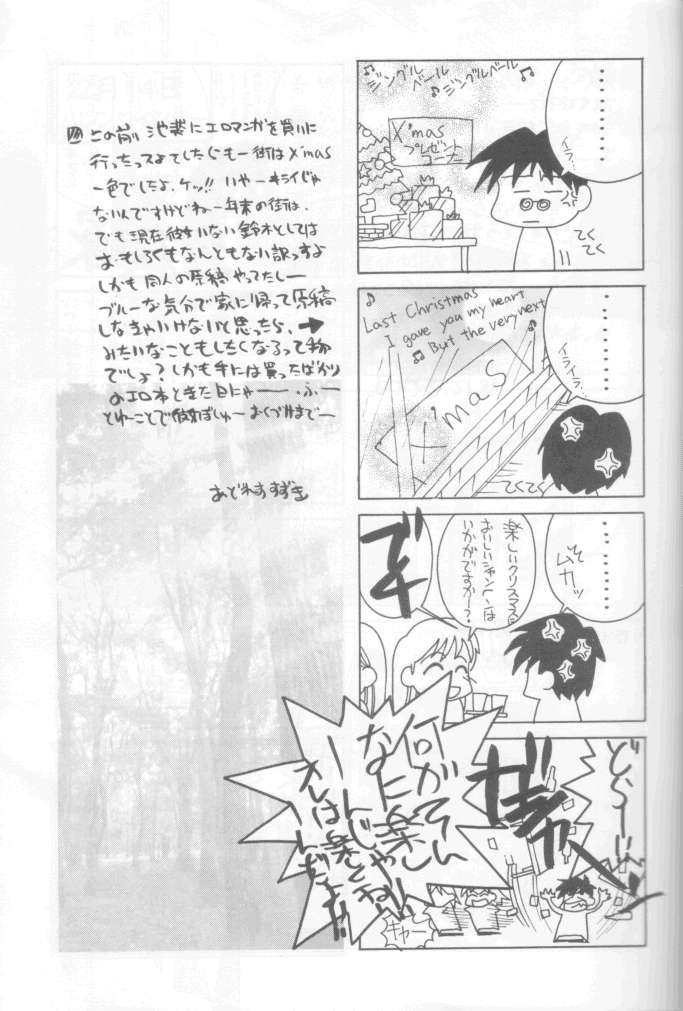 この前、池袋にエロマンガを買いに
行ったってよてしたぐもー街はX'mas
一色でしたよ、ケッ!! いやーキライじゃ
ないんですけどねー年末の街は、
でも現在彼女いない鈴木としては
おもしろくもなんともない訳っすよ
しかも同人の原稿やってたしー
ブルーな気分で家に帰って原稿
しなきゃいけないと思ったら、→
みたいなこともしたくなるって物
でしょ？しかも手には買ったばかり
のエロ本ときた日にゃーー、ふー
とゆーことで
おくづけまでー
あどれすすずき
♪ジングルベール♪ジングルベール♪
X'mas
プレゼント
コーナー
………
イラ…
てくてく
♪
Last Christmas
I gave you my heart
♫ But the very next
♪
X'mas
………
イライラ…
てくてく
………
ムカッ
楽しいクリスマスに
おいしいシャンペンは
いかがですかー？
で
ど
キャー
何がそん
なに楽しい
ーんじゃね
オレは楽しくねー
んだよ!!